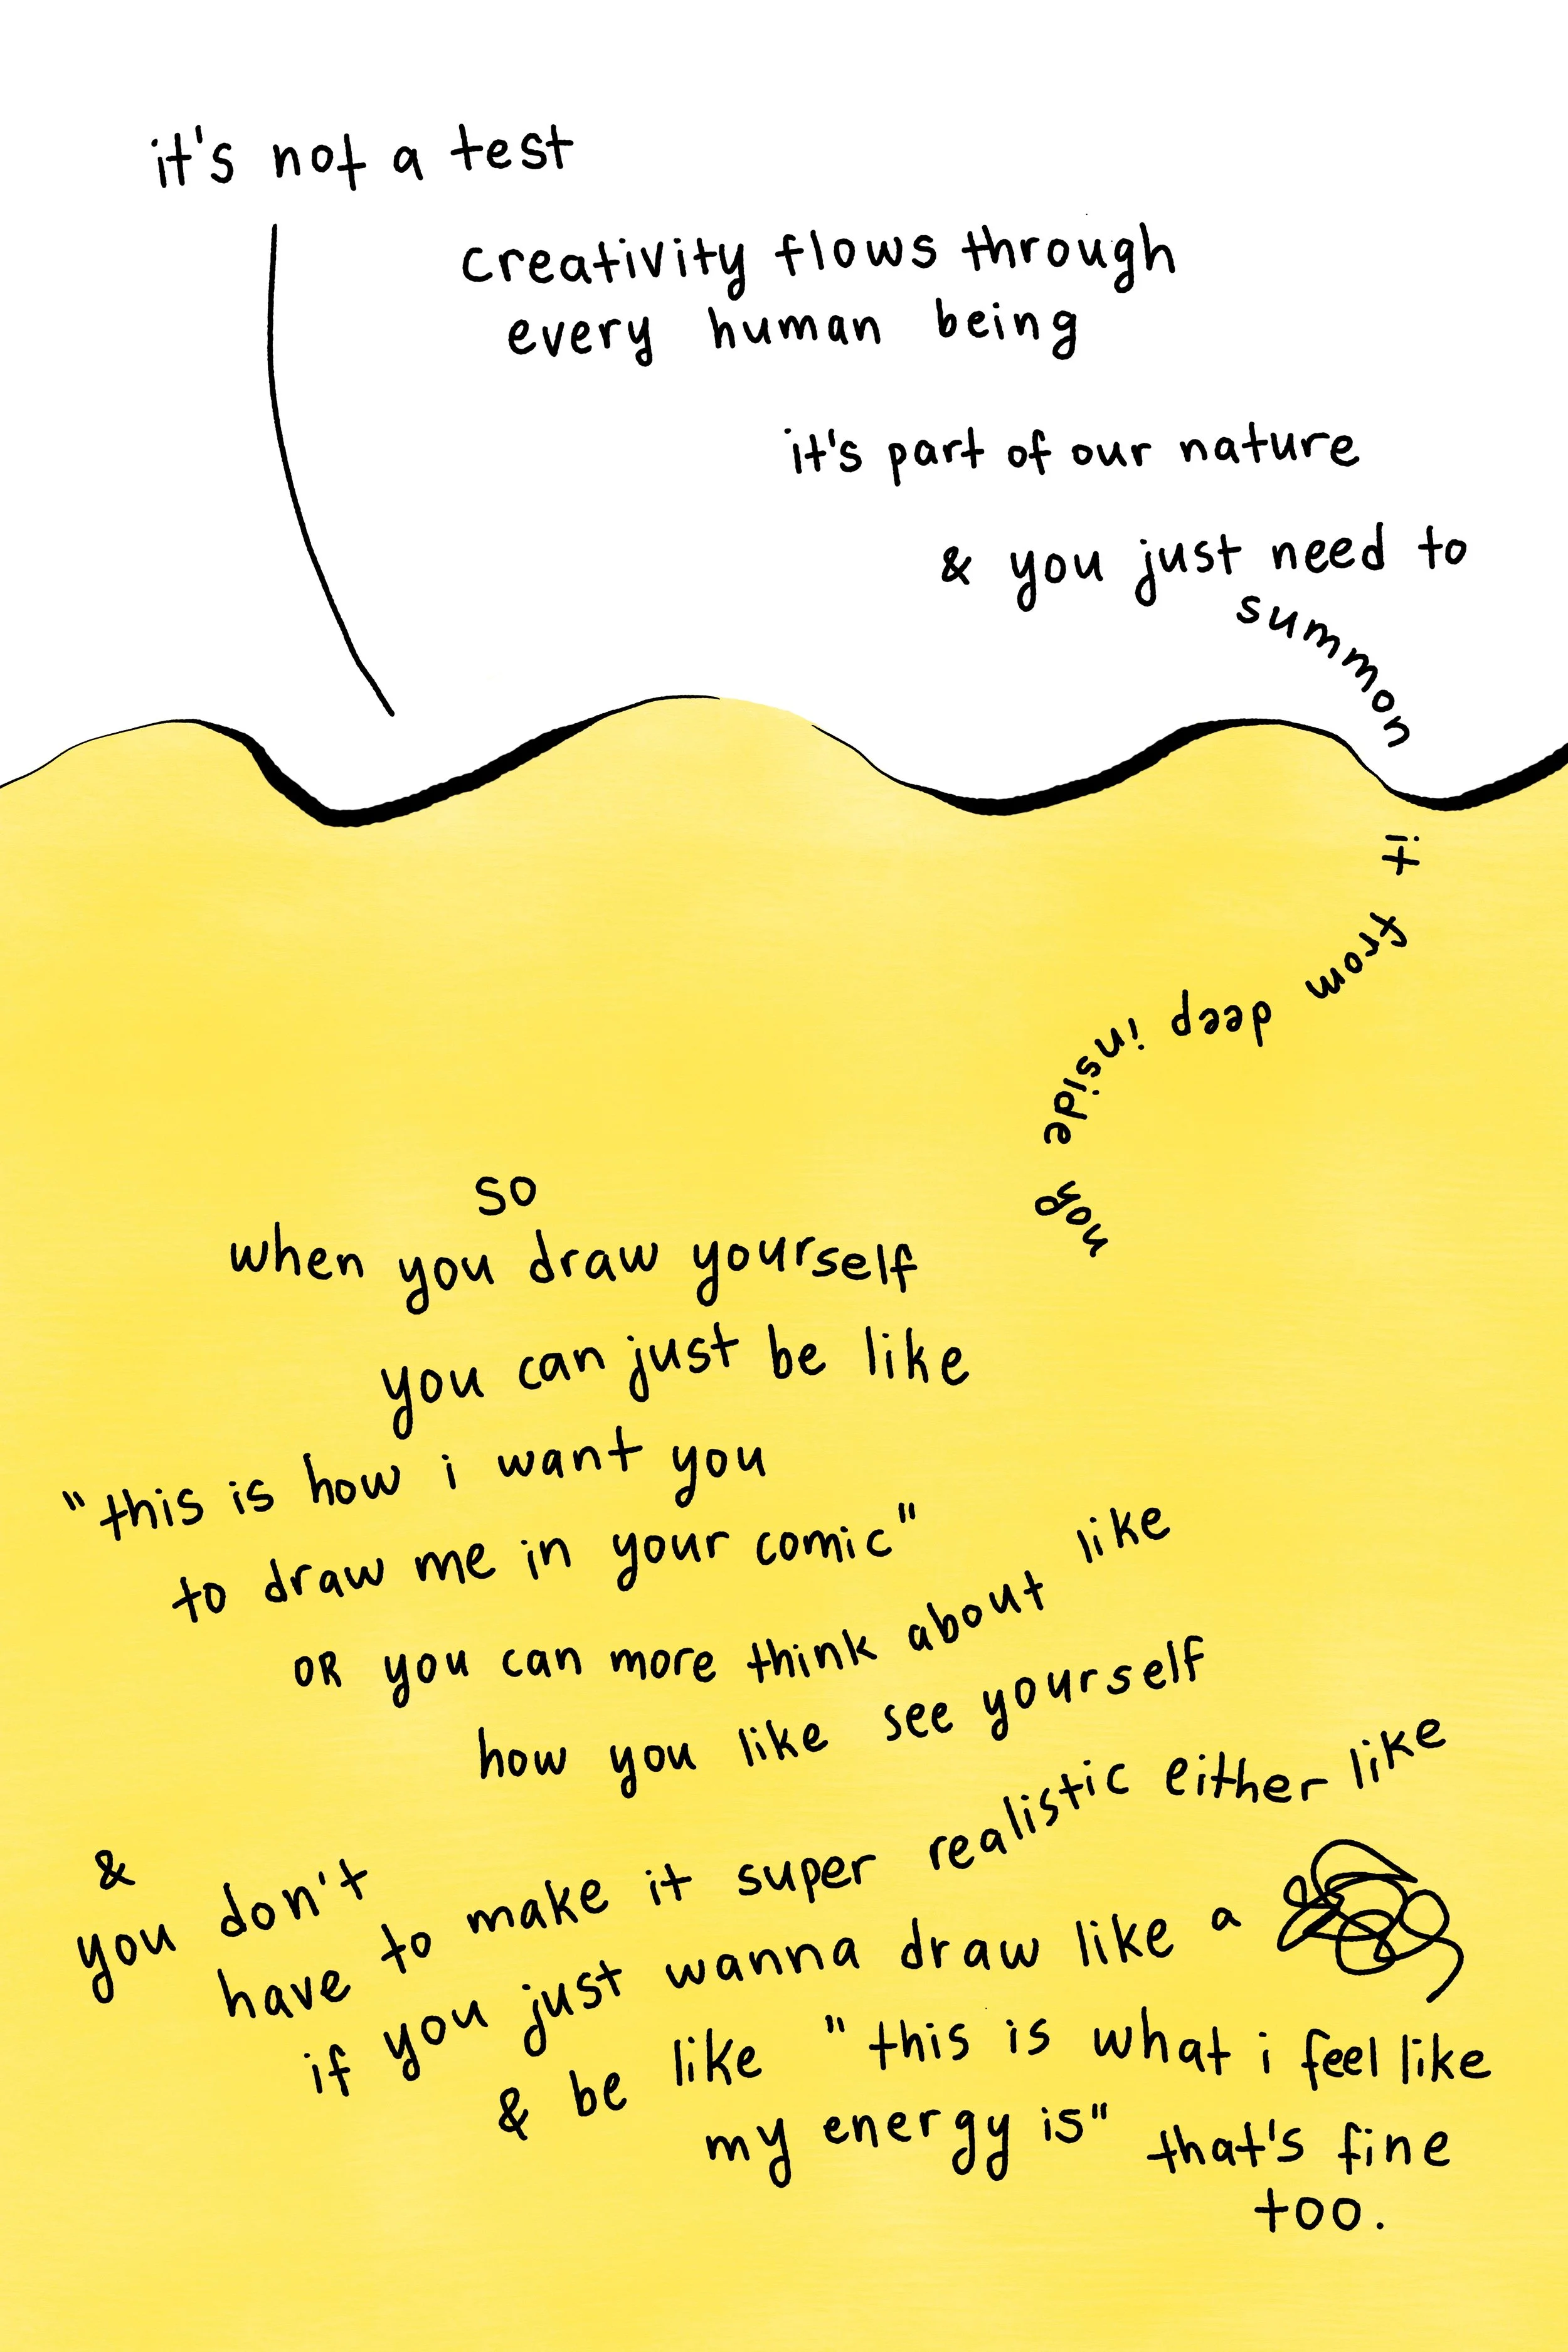 it's not a test
creativity flows through
every human being
it's part of our nature
& you just need to
summon
it from deep inside you
so
when you draw yourself
you can just be like
"this is how i want you
to draw me in your comic"
OR you can more think about like
how you like see yourself
&
you don't
have to make it super realistic either like
if you just wanna draw like a
& be like "this is what i feel like
my energy is" that's fine
too.